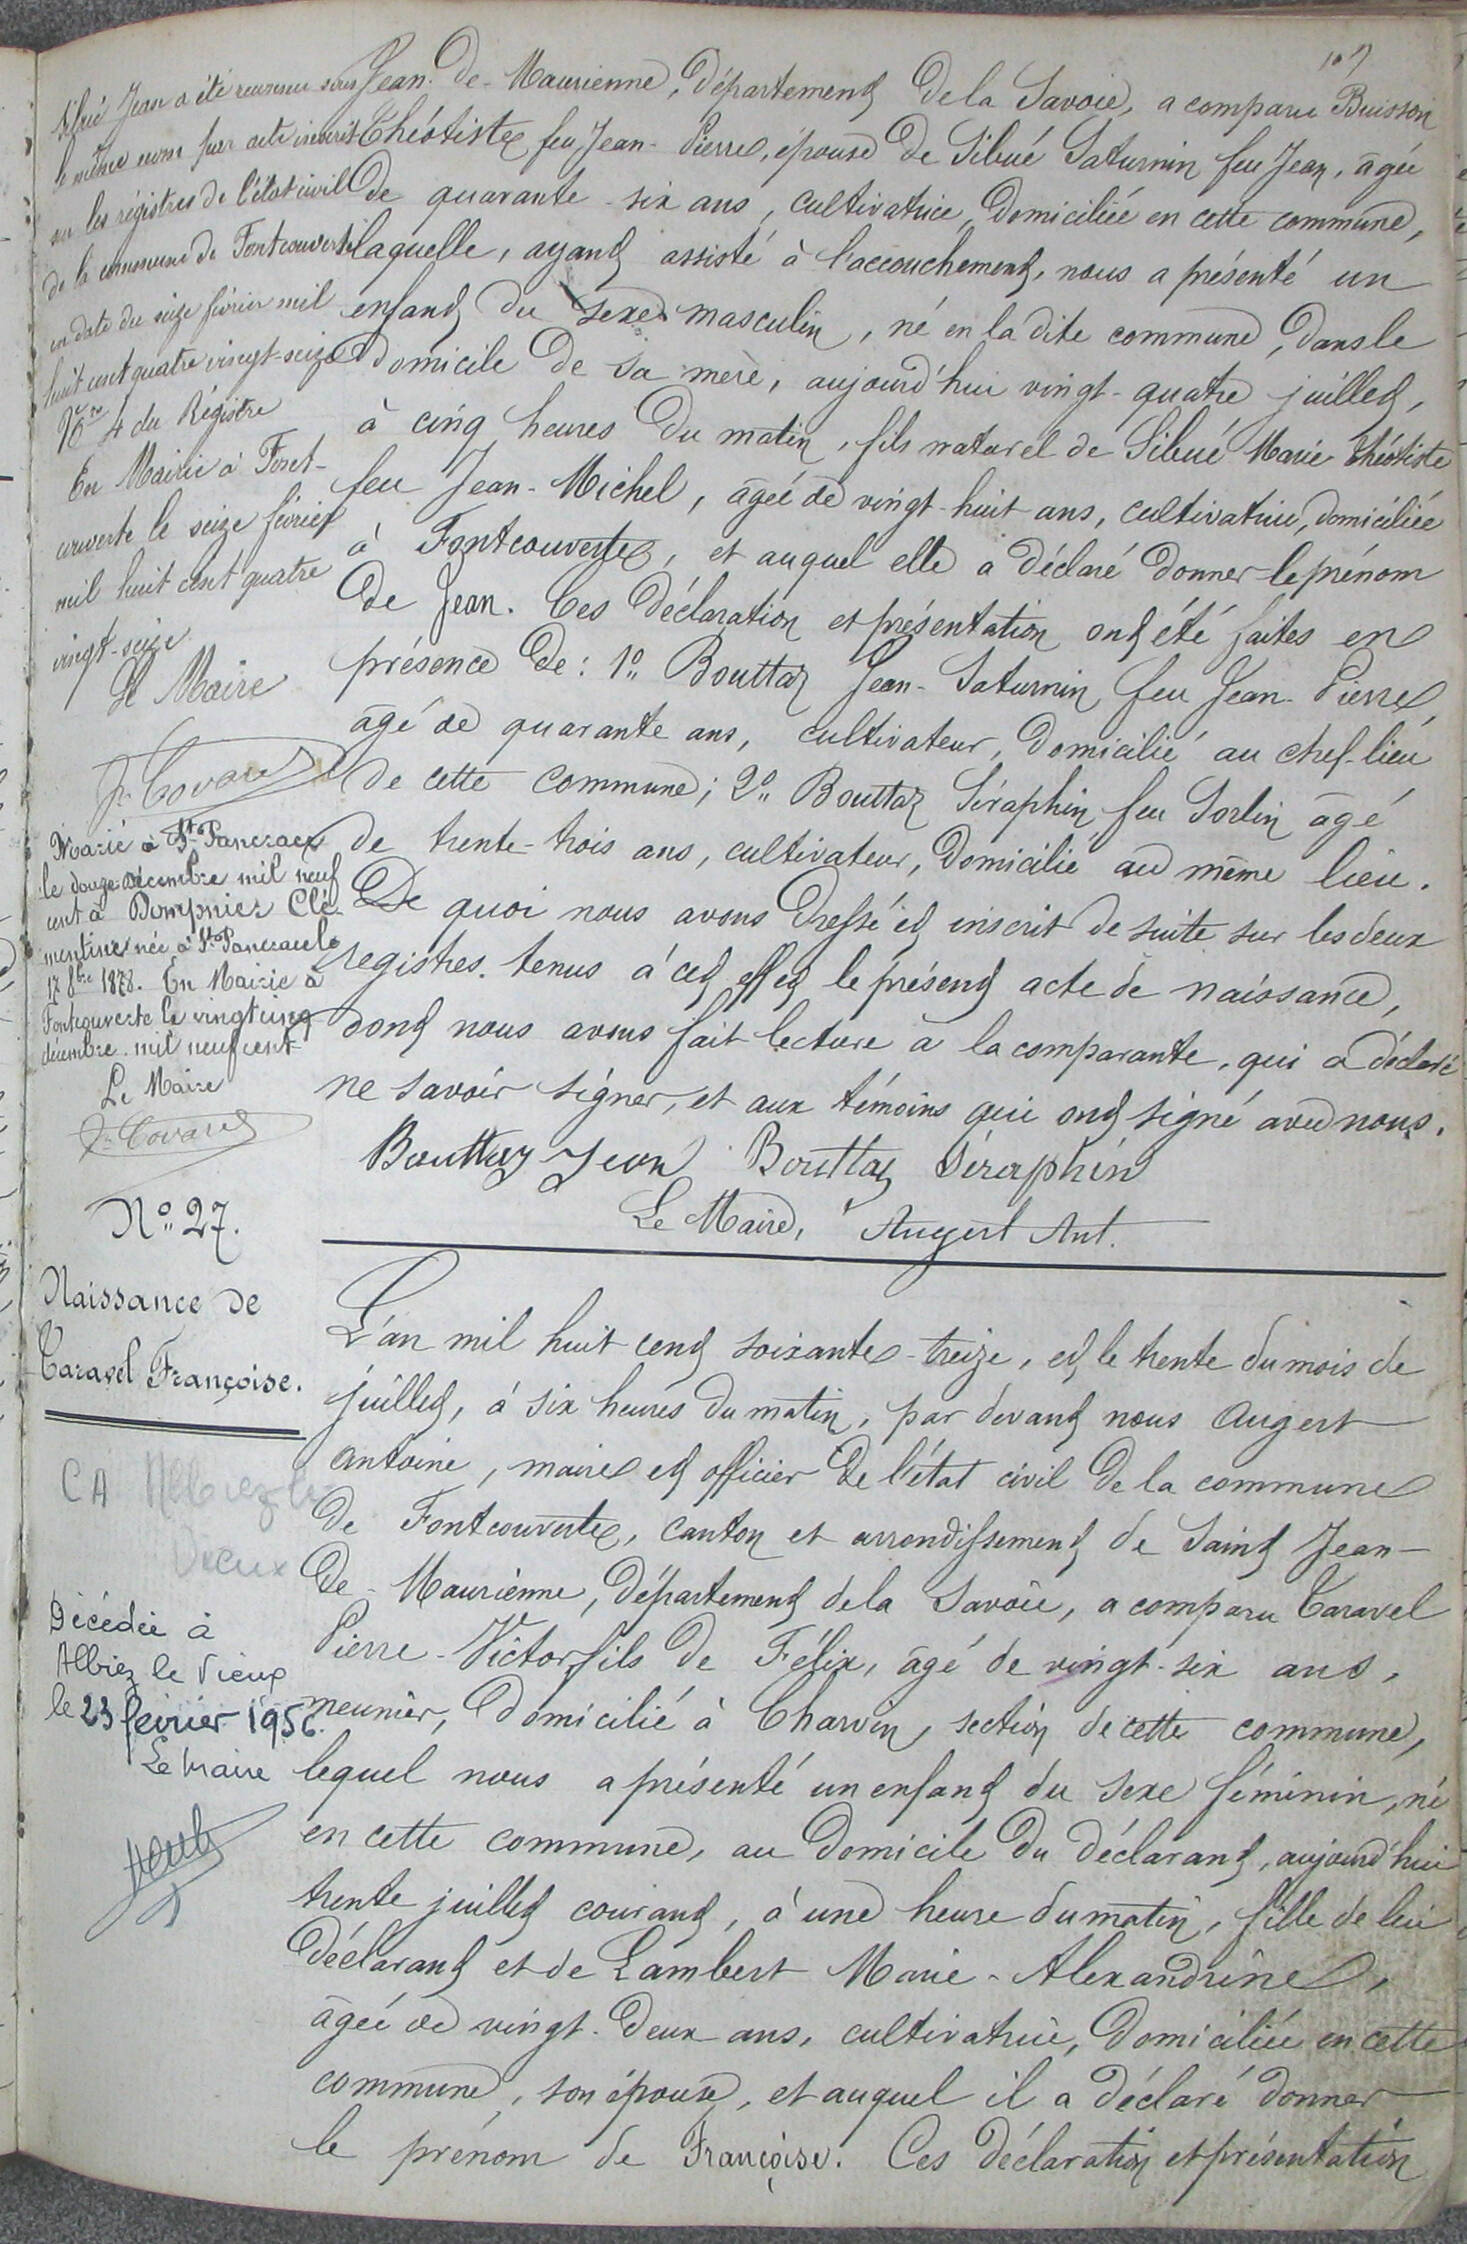 107
Jean-De-Maurienne, Département De la Savoie, a comparu Buisson
Théotiste, feu Jean-Pierre, épouse De Sibué Saturnin feu Jean, âgée
De quarante-six ans, cultivatrice, Domiciliée en cette commune,
laquelle, ayant assisté à l'accouchement, nous a présenté un
enfant du sexe masculin, né en la dite commune, dans le
Domicile De sa mère, aujourd'hui vingt-quatre juillet,
à cinq heures Du matin, fils naturel de Sibué Marie Théotiste
feu Jean-Michel, âgée de vingt-huit ans, cultivatrice, domiciliée
à Fontcouverte, et auquel elle a déclaré donner le prénom
De Jean. Ces Déclaration et présentation ont été faites en
présence De : 1° Bouttaz Jean-Saturnin, feu Jean-Pierre,
âgé de quarante ans, cultivateur, Domicilié au chef-lieu
De cette commune ; 2° Bouttaz Séraphin, feu Sorlin âgé
de trente-trois ans, cultivateur, Domicilié au même lieu.
De quoi nous avons Dressé et inscrit de suite sur les deux
registres tenus à cet effet le présent acte de naissance,
dont nous avons fait lecture à la comparante, qui a déclaré
ne savoir signer, et aux témoins qui ont signé avec nous.
Bouttaz Jean Bouttaz Séraphin
Le Maire, Augert Ant.
Sibué Jean a été reconnu sous
le même nom par acte inscrit
sur les régistres de l'état civil
de la commune de Fontcouverte
en date du seize février mil
huit cent quatre vingt-seize
N° 4 du Régistre
En Mairie à Font-
couverte le seize février
mil huit cent quatre
vingt-seize
Le Maire
Marié à St Pancrace
le douze décembre mil neuf
cent à Dompnier Clé-
mentine née à St Pancrace le
17 8bre 1878. En Mairie à
Fontcouverte le vingt cinq
décembre mil neuf cent
Le Maire
N° 27.
Naissance de
Caravel Françoise.
CA Albiez le
Vieux
Décédée à
Albiez le Vieux
le 23 février 1956.
Le Maire
L'an mil huit cent soixante-treize, et le trente du mois de
juillet, à six heures du matin, par devant nous Augert
Antoine, maire et officier De l'état civil De la commune
De Fontcouverte, canton et arrondissement de Saint Jean-
De-Maurienne, Département de la Savoie, a comparu Caravel
Pierre-Victor, fils De Félix, âgé de vingt-six ans,
meunier, Domicilié à Charvin, section de cette commune,
lequel nous a présenté un enfant du sexe féminin, né
en cette commune, au Domicile Du déclarant, aujourd'hui
trente juillet courant, à une heure du matin, fille de lui
Déclarant et de Lambert Marie-Alexandrine,
âgée de vingt-Deux ans, cultivatrice, Domiciliée en cette
commune, son épouse, et auquel il a déclaré donner
le prénom de Françoise. Ces déclaration et présentation